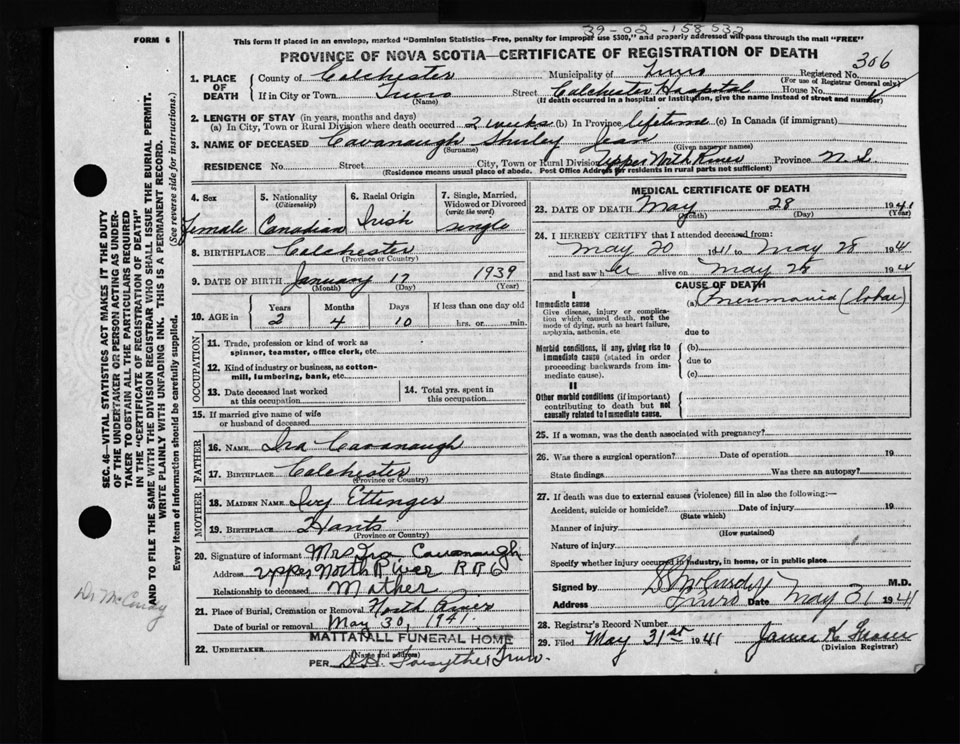 39-02-158532
FORM 6
This form if placed in an envelope, marked "Dominion Statistics—Free, penalty for improper use $300," and properly addressed will pass through the mail "FREE"
PROVINCE OF NOVA SCOTIA—CERTIFICATE OF REGISTRATION OF DEATH
306
1. PLACE OF DEATH
County of Colchester Municipality of Truro Registered No.
(For use of Registrar General only)
If in City or Town Truro Street Colchester Hospital House No.
(Name) (If death occurred in a hospital or institution, give the name instead of street and number)
2. LENGTH OF STAY (in years, months and days)
(a) In City, Town or Rural Division where death occurred 2 weeks (b) In Province lifetime (c) In Canada (if immigrant)
3. NAME OF DECEASED Cavanaugh Shirley Jean
(Surname) (Given name or names)
RESIDENCE No. Street City, Town or Rural Division Upper North River Province N. S.
(Residence means usual place of abode. Post Office Address for residents in rural parts not sufficient)
4. Sex
Female
5. Nationality
(Citizenship)
Canadian
6. Racial Origin
Irish
7. Single, Married, Widowed or Divorced
(write the word)
single
8. BIRTHPLACE Colchester
(Province or Country)
9. DATE OF BIRTH January 17 1939
(Month) (Day) (Year)
10. AGE in
Years Months Days If less than one day old
2 4 10 hrs. or min.
OCCUPATION
11. Trade, profession or kind of work as
spinner, teamster, office clerk, etc.
12. Kind of industry or business, as cotton-
mill, lumbering, bank, etc.
13. Date deceased last worked
at this occupation
14. Total yrs. spent in
this occupation
15. If married give name of wife
or husband of deceased
FATHER
16. NAME Ira Cavanaugh
17. BIRTHPLACE Colchester
(Province or Country)
MOTHER
18. MAIDEN NAME Ivy Ettinger
19. BIRTHPLACE Hants
(Province or Country)
20. Signature of informant Mrs Ira Cavanaugh
Address Upper North River R R 6
Relationship to deceased Mother
21. Place of Burial, Cremation or Removal North River
Date of burial or removal May 30, 1941.
22. UNDERTAKER MATTATALL FUNERAL HOME
(Name and address)
PER D.H. Forsythe Truro.
MEDICAL CERTIFICATE OF DEATH
23. DATE OF DEATH May 28 1941
(Month) (Day) (Year)
24. I HEREBY CERTIFY that I attended deceased from:
May 20 1941 to May 28 194
and last saw her alive on May 28 194
CAUSE OF DEATH
I
Immediate cause
Give disease, injury or complication which caused death, not the mode of dying, such as heart failure, asphyxia, asthenia, etc
(a) Pneumonia (lobar)
due to
Morbid conditions, if any, giving rise to immediate cause (stated in order proceeding backwards from immediate cause).
(b)
due to
(c)
II
Other morbid conditions (if important) contributing to death but not causally related to immediate cause.
25. If a woman, was the death associated with pregnancy?
26. Was there a surgical operation? Date of operation 19
State findings Was there an autopsy?
27. If death was due to external causes (violence) fill in also the following:—
Accident, suicide or homicide? Date of injury 19
(State which)
Manner of injury
(How sustained)
Nature of injury
Specify whether injury occurred in industry, in home, or in public place
Signed by McCurdy M.D.
Address Truro Date May 31 1941
28. Registrar's Record Number
29. Filed May 31st 1941 James K Fraser
(Division Registrar)
SEC. 46—VITAL STATISTICS ACT MAKES IT THE DUTY
OF THE UNDERTAKER OR PERSON ACTING AS UNDER-
TAKER TO OBTAIN ALL THE PARTICULARS REQUIRED
IN THE "CERTIFICATE OF REGISTRATION OF DEATH"
AND TO FILE THE SAME WITH THE DIVISION REGISTRAR WHO SHALL ISSUE THE BURIAL PERMIT.
WRITE PLAINLY WITH UNFADING INK. THIS IS A PERMANENT RECORD.
Every item of information should be carefully supplied. (See reverse side for instructions.)
Dr McCurdy